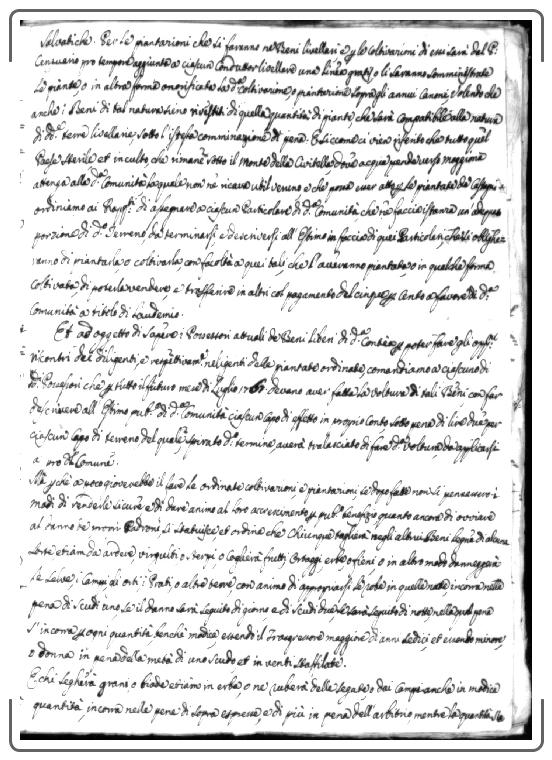 Salvatiche. Per le piantazioni che si faranno ne Beni livellari e p le Coltivazioni di essi sarà dal P.
Censuario pro tempore aggiunta a ciascun Conduttor livellare una linea gratis o li saranno somministrate
le piante o in altra forma onorificato la d.a coltivazione, o piantazione sopra gli annui Canoni Volendo che
anche i Beni di tal natura sieno rivestiti di quella quantità di piante che sarà Compatibile alla natura
di d.e terre livellarie sotto l'istessa comminazione di pena. E siccome ci vien riferito che tutto quel
Paese Sterile et inculto che rimane sotto il monte della Civitella dove acqua pende verso maggiona
attenga alla d.a Comunità la quale non ne ricava util veruno e che possa esser atto p le piantate de Castagni
ordiniamo ai di assegnare a ciascun Particolare di d.a Comunità che ne faccia istanza un adequa
porzione di d.o Terreno da terminarsi e descriversi all'Estimo in faccia di quei Particolari che si obblighe=
ranno di piantarla o coltivarla, con facoltà a quei tali, che l'averanno piantata o in qualche forma
Coltivata, di poterla vendere e trasferire in altri col pagamento del cinque p Cento a favore di d.a
Comunità a titolo di Laudemio.
Et ad oggetto di sapere i Possessori attuali de Beni liberi di d.o e poter fare gli
riscontri dei diligenti, e respettivam.e neligenti delle piantate ordinate, comandiamo a ciascuno di
d.i Possessori che p tutto il futuro mese di Luglio devano aver fatta la Voltura di tali Beni con far
descrivere all'Estimo pub.o di d.a Comunità ciascun Capo di effetto in proprio Conto sotto pena di lire due per
ciascun Capo di terreno del quale, spirato d.o termine, averà tralasciato di fare d.a Voltura da applicarsi
a pro del Comune.
Ma p che a poco gioverebbe il fare le ordinate coltivazioni e piantazioni se dopo fatte non si pensasse ai
modi di renderle sicure e di dare animo al loro accrescimento p pub.o benefizio, quanto ancora di ovviare
al danno de Padroni, si statuisce et ordina che Chiunque taglierà negli altrui Beni Legna di alcuna
sorte etiam da ardere virgulti o sterpi o Coglierà frutti Ortaggi erbe o fieni o in altro modo danneggiarà
le Selve i Campi gli orti i Prati, o altre terre, con animo di appropriarsi le robe in quelle nate incorra nella
pena di Scudi uno se il danno sarà seguito di giorno e di Scudi due se sarà seguito di notte nella qual pena
s'incorra p ogni quantità benchè modica, essendo il Trasgressore maggiore di anni Sedici, et essendo minore,
o donna in pena della metà di uno scudo et in venti Staffilate.
E chi Segherà grani o biade etiam in erba o ne ruberà delle segate o dai Campi anche in modica
quantità incorra nelle pene di sopra espresse, e di più in pena dell'arbitrio, mentre la quantità